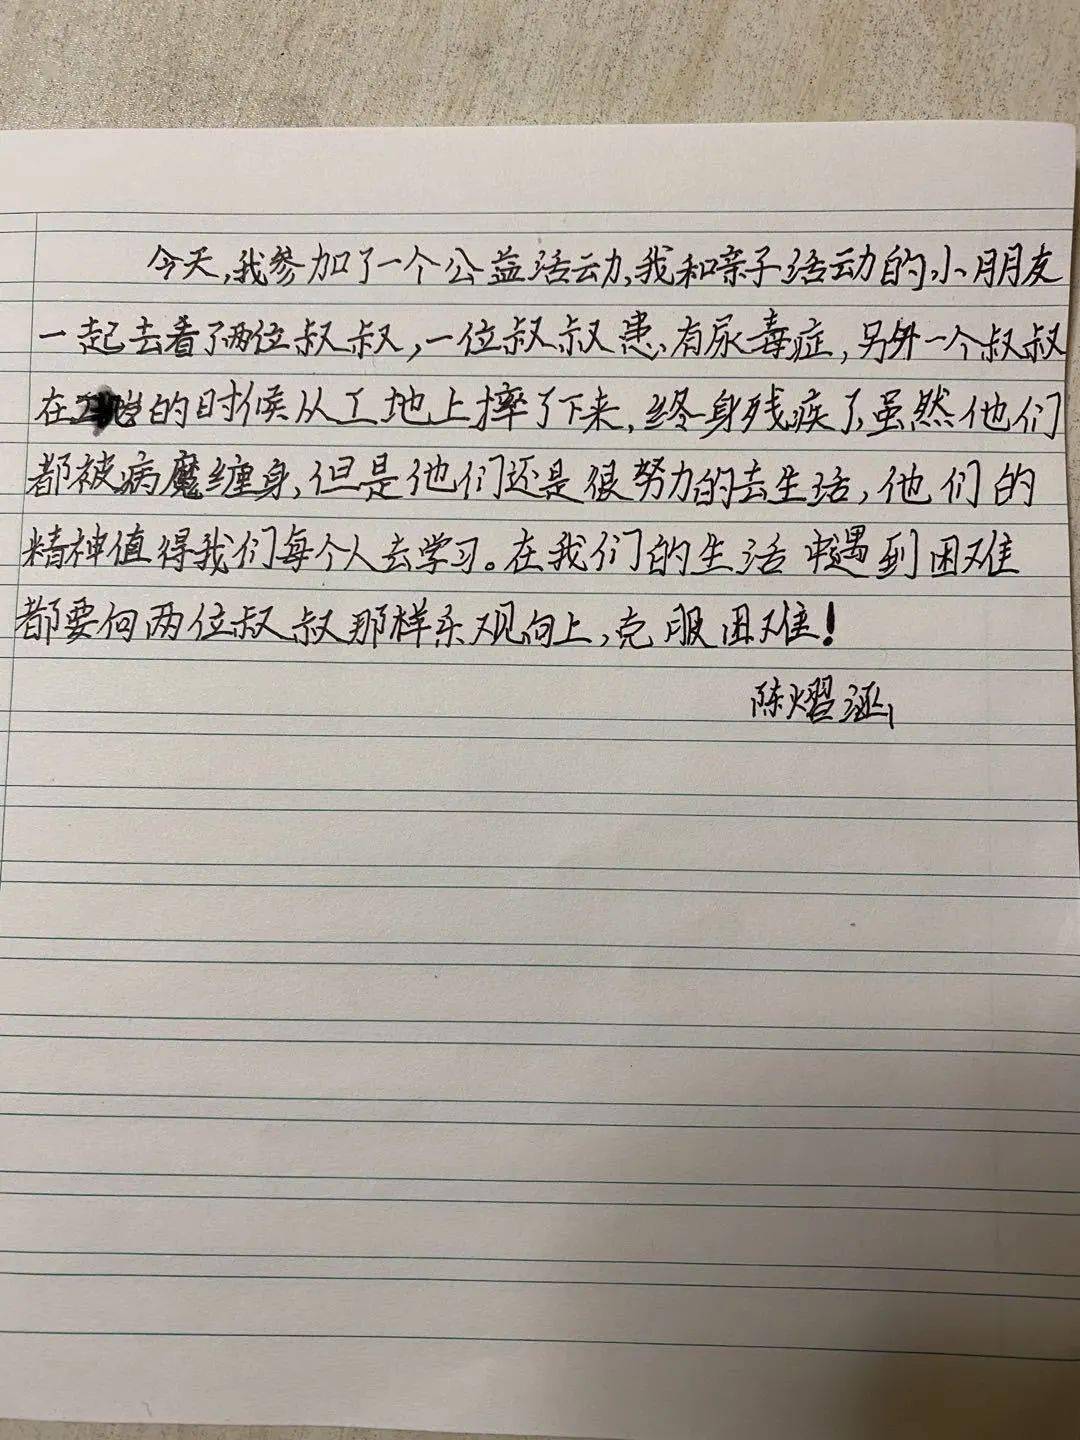 今天,我参加了一个公益活动,我和亲子活动的小朋友
一起去看了两位叔叔,一位叔叔患有尿毒症,另外一个叔叔
在 的时候从工地上摔了下来,终身残疾了,虽然他们
都被病魔缠身,但是他们还是很努力的去生活,他们的
精神值得我们每个人去学习。在我们的生活中遇到困难
都要向两位叔叔那样乐观向上,克服困难!
陈熠涵